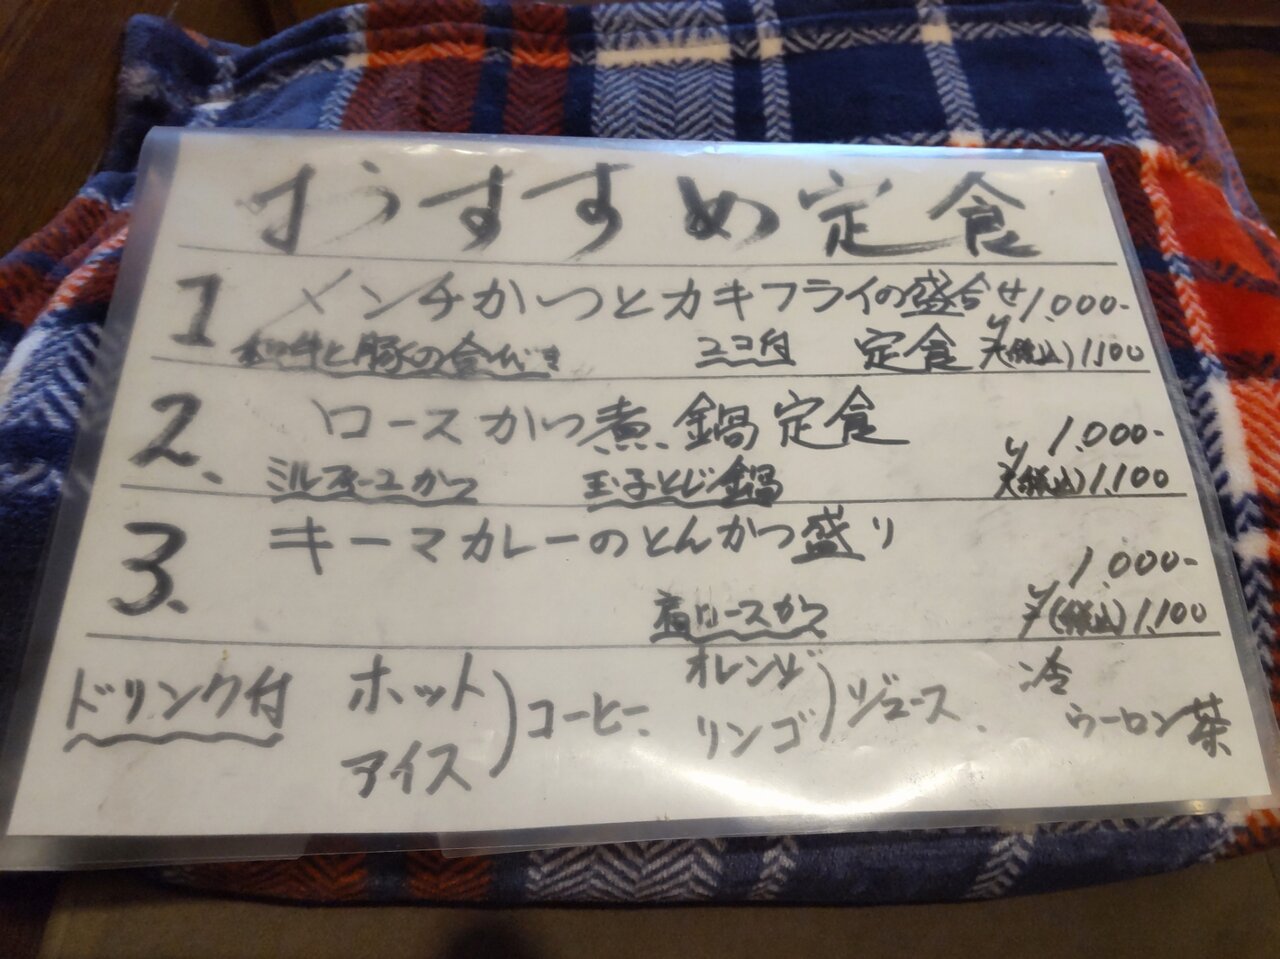 おすすめ定食
1 メンチかつとカキフライの盛合せ ¥1,000-
和牛と豚の合びき 2コ付 定食 (税込)1,100
2. ロースかつ煮鍋定食 ¥1,000-
ミルフィーユかつ 玉子とじ鍋 (税込)1,100
3. キーマカレーのとんかつ盛り ¥1,000-
肩ロースかつ (税込)1,100
ドリンク付 ホット アイス)コーヒー、オレンジ リンゴ)ジュース、冷ウーロン茶